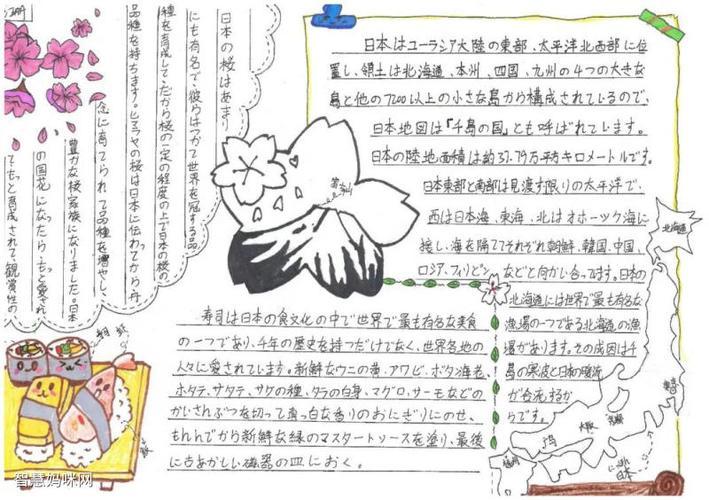 日本はユーラシア大陸の東部、太平洋北西部に位
置し、領土は北海道、本州、四国、九州の4つの大きな
島と他の7200以上の小さな島から構成されているので、
日本地図は『千島の国』とも呼ばれています。
日本の陸地面積は約37.79万平方キロメートルです。
日本東部と南部は見渡す限りの太平洋で、
西は日本海、東海、北はオホーツク海に
接し、海を隔ててそれぞれ朝鮮、韓国、中国、
ロシア、フィリピンなどと向かい合ってます。日本の
北海道には世界で最も有名な
漁場の一つである北海道の漁
場があります。その成因は千
島の寒波と日本の暖流
が合流するか
らです。
北海道
東京
大阪
福岡
日本
日本の桜はあまり
にも有名で、彼らはかつて世界を冠する品
種を育成して、だから桜の一定の程度の上で日本の桜の
品種を持ちます。ヒマラヤの桜は日本に伝わってから、丹
念に育てられて品種を増やし、
豊かな桜家族になりました。日本
の国花になったら、もっと愛され
て、もっと育成されて、観賞性の
富士山
寿司は日本の食文化の中で世界で最も有名な美食
の一つであり、千年の歴史を持つだけでなく、世界各地の
人々に愛されています。新鮮なウニの黄、アワビ、ボタン海老、
ホタテ、サケの種、タラの白身、マグロ、サーモなどの
かいさんぶつを切って真っ白な香りのおにぎりにのせ、
もんんでから新鮮な緑のマスタートソースを塗り、最後
に古めかしい磁器の皿におく。
智慧妈咪网